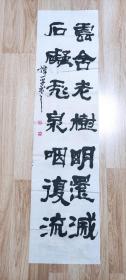 雲含老樹明還滅
石礙飛泉咽復流